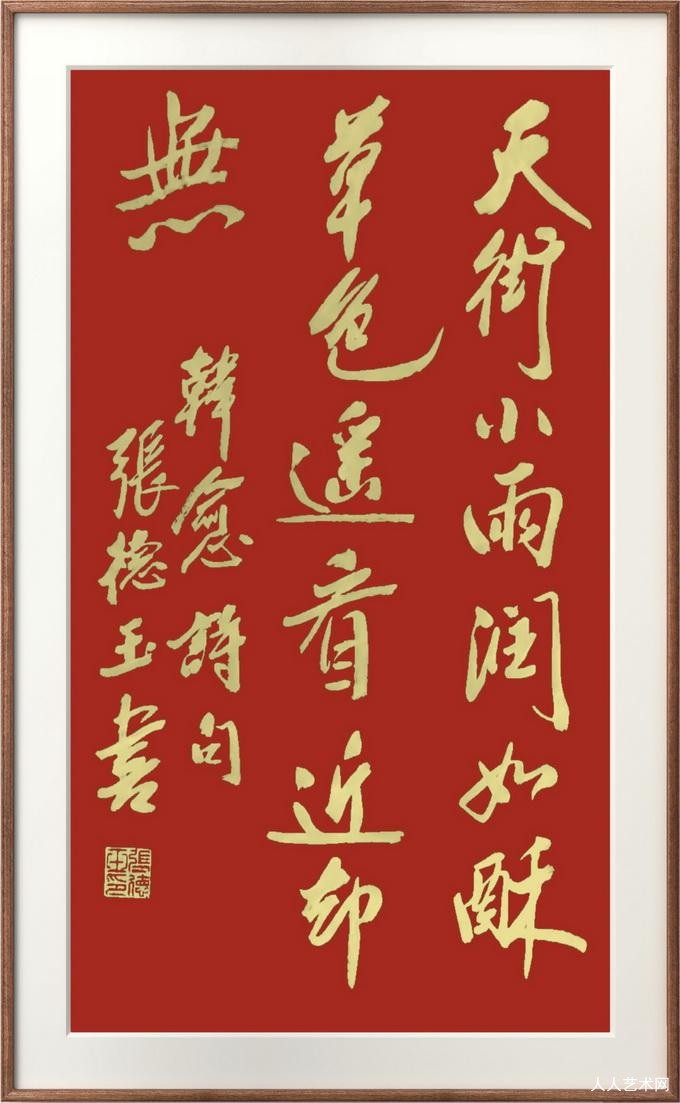 天街小雨润如酥
草色遥看近却
無
韓愈詩句
張德玉書
張德玉印
人人艺术网